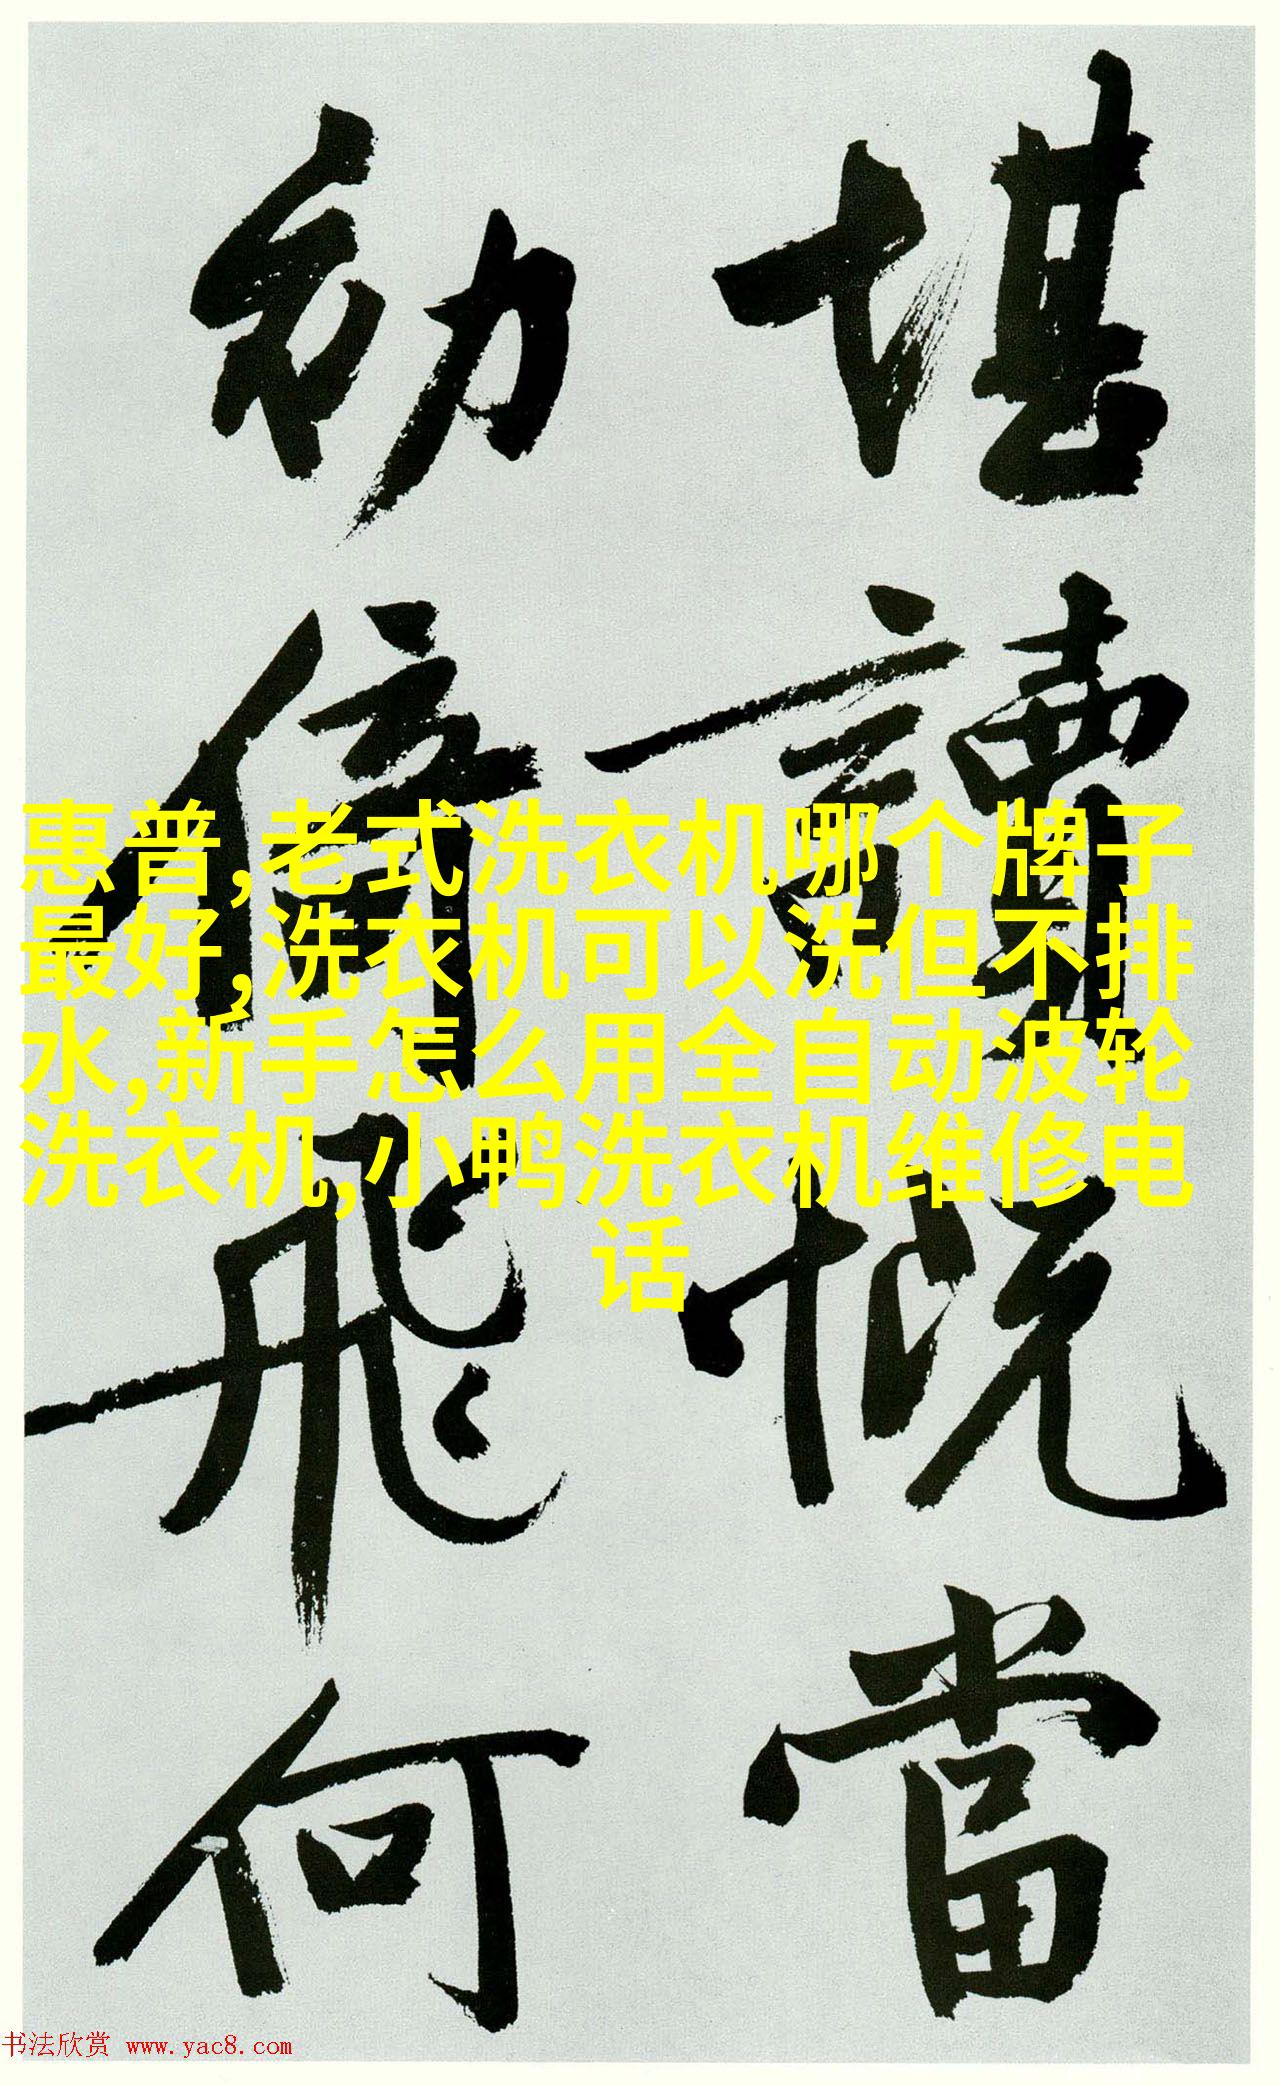 堪讀慨當
幼倚飛何
惠普,老式洗衣机哪个牌子
最好,洗衣机可以洗但不排
水,新手怎么用全自动波轮
洗衣机,小鸭洗衣机维修电
话
书法欣赏 www.yac8.com